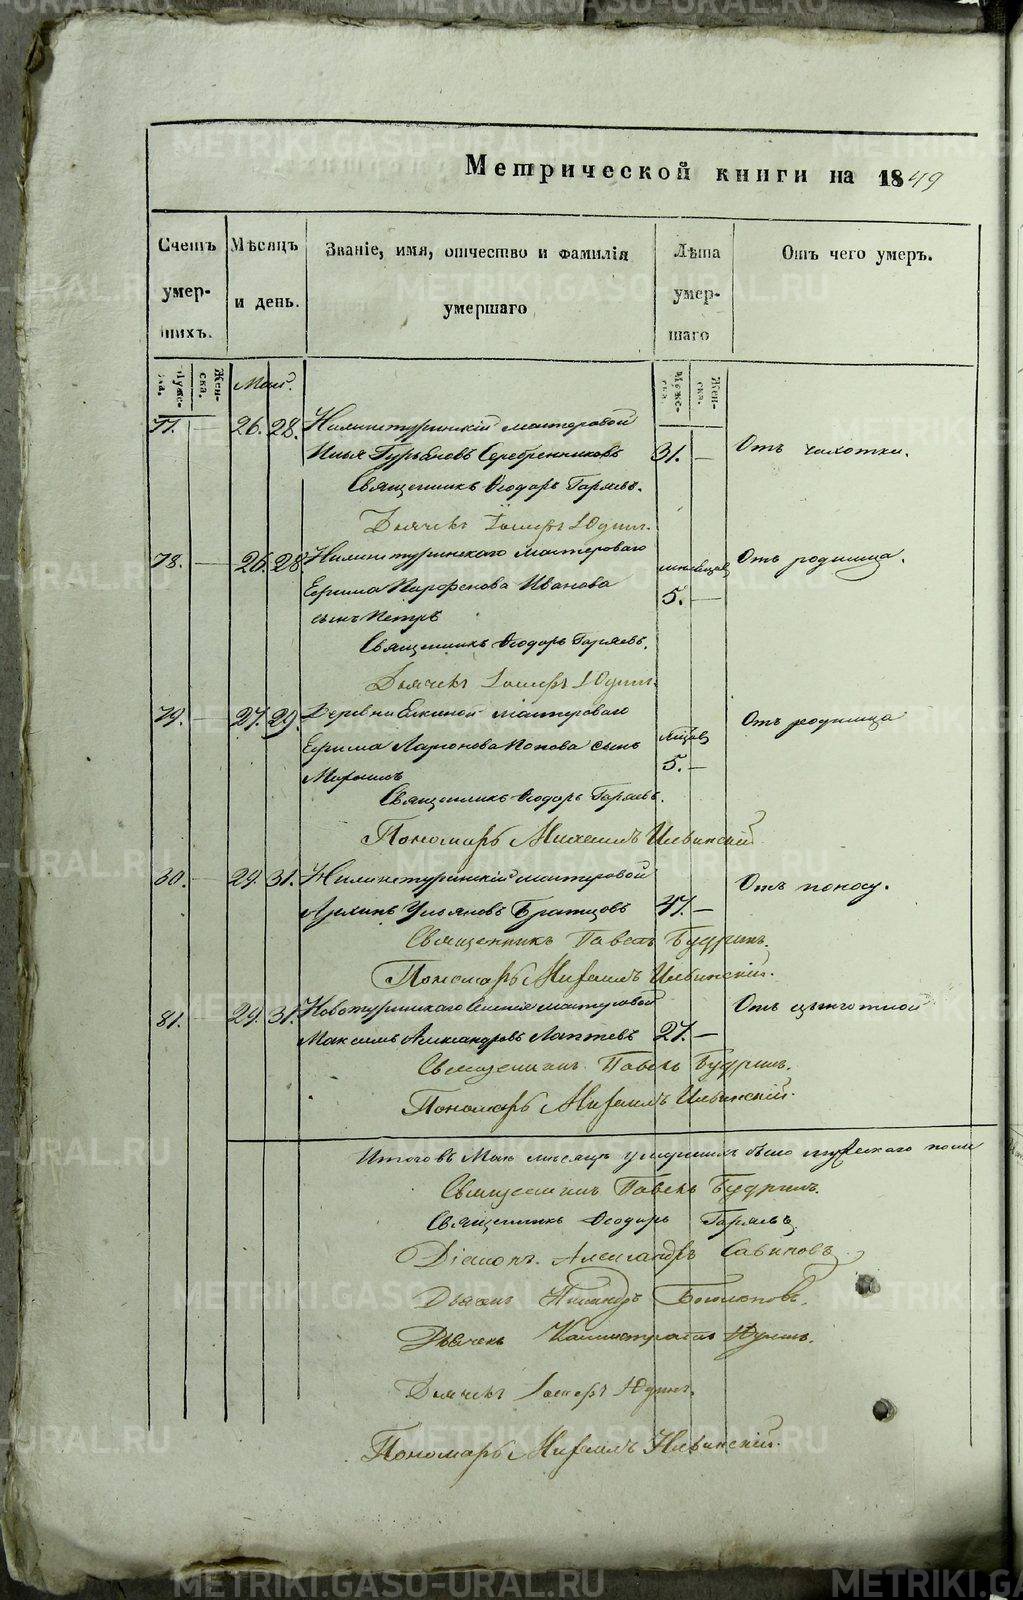 Метрической книги на 1849
Счетъ умер- шихъ.
Мѣсяцъ и день.
Званіе, имя, отчество и фамилія умершаго
Лѣта умер- шаго
Отъ чего умеръ.
Муже- ска.
Жен- ска.
Маій.
Муже- ска.
Жен- ска.
77. — 26. 28. Нижнетуринскій мастеровой
Илья Гурьяновъ Серебренниковъ 31. — Отъ чахотки.
Священникъ Ѳеодоръ Гаряевъ.
Дьячекъ Іосифъ Юдинъ.
78. — 26. 28. Нижнетуринскаго мастероваго Отъ родимца.
Ефима Парфенова Иванова мѣсяцов 5. —
сынъ Петръ
Священникъ Ѳеодоръ Гаряевъ.
Дьячекъ Іосифъ Юдинъ.
79. — 27. 29. Деревни Елкиной мастероваго Отъ родимца
Ефима Ларионова Попова сынъ 5. —
Михаилъ
Священникъ Ѳеодоръ Гаряевъ.
Пономарь Михаилъ Ильинскій
80. — 29. 31. Нижнетуринскій мастеровой Отъ поносу.
Архипъ Ульяновъ Братцовъ 47. —
Священникъ Павелъ Будринъ.
Пономарь Михаилъ Ильинскій.
81. — 29. 31. Новотуринскаго селенія мастеровой Отъ цынготной
Максимъ Александровъ Лаптевъ 27. —
Священникъ Павелъ Будринъ.
Пономарь Михаилъ Ильинскій.
Итого въ Маѣ мѣсяцѣ умершихъ было мужескаго пола
Священникъ Павелъ Будринъ.
Священникъ Ѳеодоръ Гаряевъ
Діаконъ Александръ Савиновъ
Дьячекъ
Дьячекъ Каллистратъ Юдинъ.
Дьячекъ Іосифъ Юдинъ.
Пономарь Михаилъ Ильинскій.
METRIKI.GASO-URAL.RU